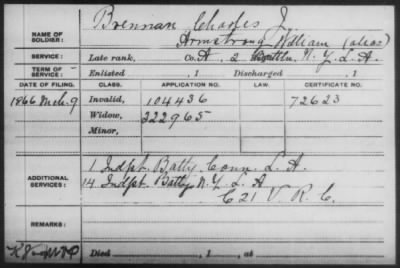 NAME OF SOLDIER: Brennan Charles J.
Armstrong William (alias)
SERVICE: Late rank, Co. A, 2 Battln. N.Y.L.A.
TERM OF SERVICE: Enlisted , 1 Discharged , 1
DATE OF FILING. CLASS. APPLICATION NO. LAW. CERTIFICATE NO.
1866 Mch. 9 Invalid, 104436 72623
Widow, 222965
Minor,
1 Indpt. Batty Conn. L.A.
ADDITIONAL SERVICES: 14 Indpt. Batty N.Y.L.A.
C 21 V.R.C.
REMARKS:
Died , 1 , at